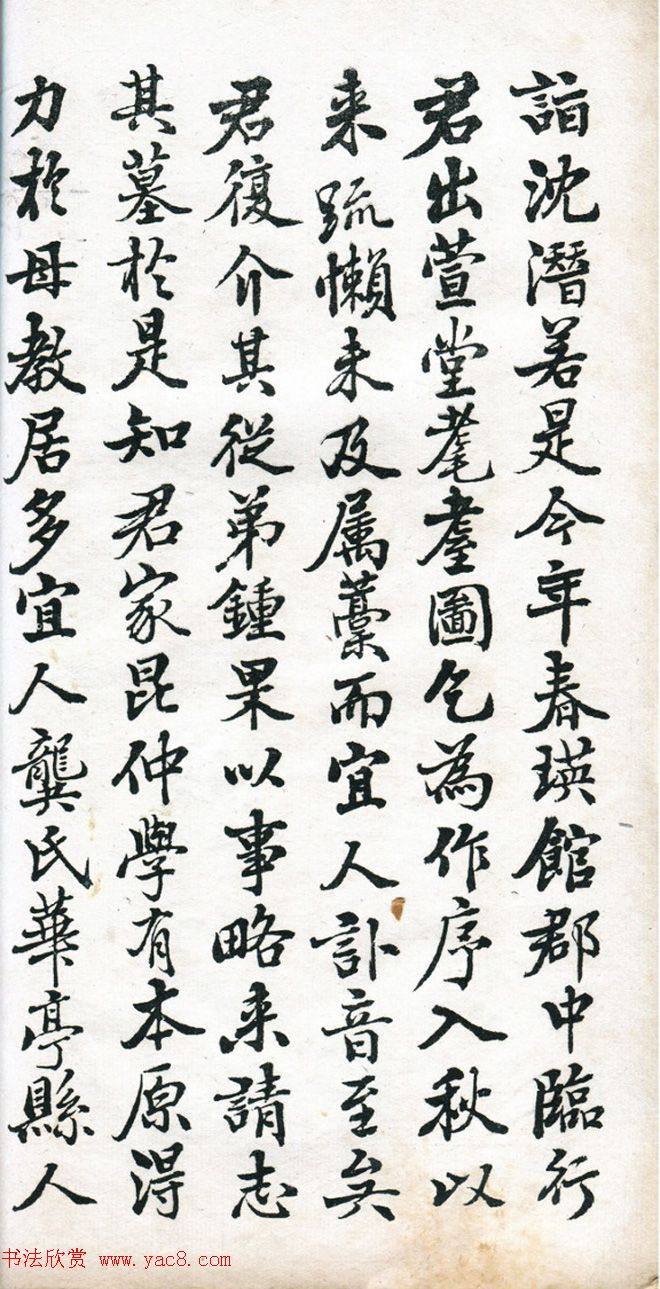 詣沈潛若是今年春瑛館郡中臨行
君出萱堂耄耋圖乞為作序入秋以
来疏懶未及属藁而宜人訃音至矣
君復介其從弟鍾果以事略来請志
其墓於是知君家昆仲學有本原淂
力於母教居多宜人龔氏華亭縣人
书法欣赏 www.yac8.com